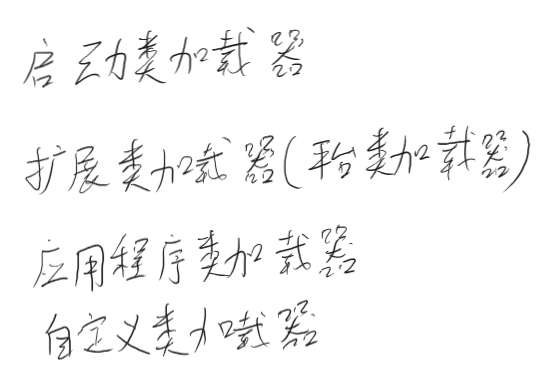 启动类加载器
扩展类加载器(平台类加载器)
应用程序类加载器
自定义类加载器